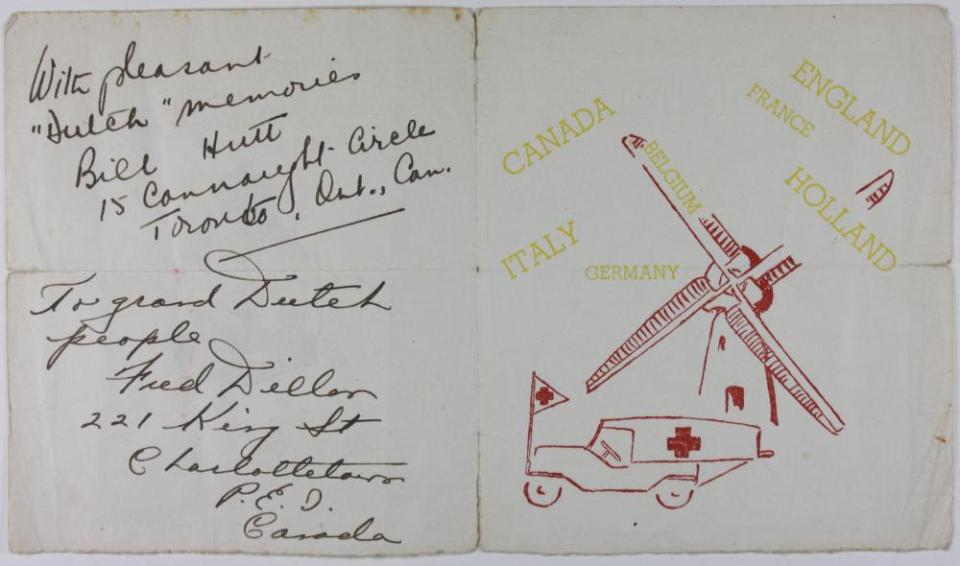 With pleasant
"Dutch" memories
Bill Hutt
15 Connaught Circle
Toronto, Ont., Can.
To grand Dutch
people
Fred Dillon
221 King St
Charlottetown
P.E.I.
Canada
CANADA
ENGLAND
FRANCE
BELGIUM
HOLLAND
ITALY
GERMANY